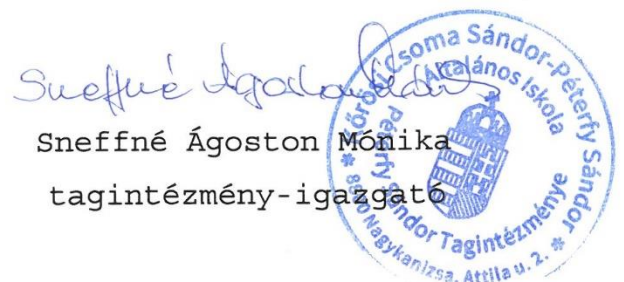 Sneffné Ágoston Mónika
Sneffné Ágoston Mónika
tagintézmény-igazgató
Kőrösi Csoma Sándor-Péterfy Sándor
Általános Iskola
Péterfy Sándor Tagintézménye
* 8800 Nagykanizsa, Attila u. 2. *